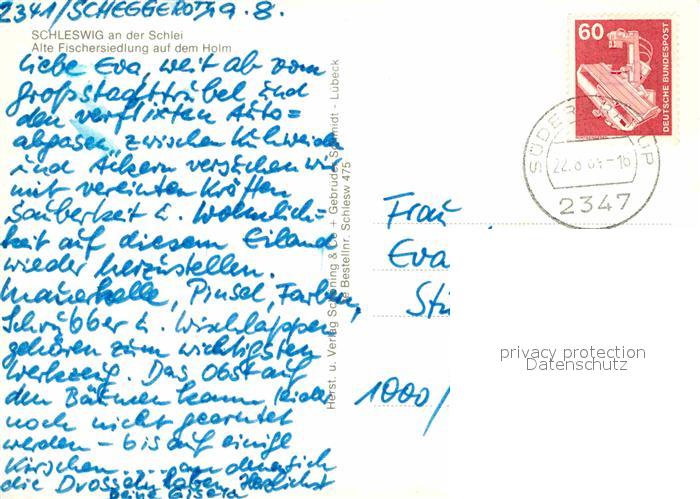 2341/SCHEGGEROTT, 19.8.
SCHLESWIG an der Schlei
Alte Fischersiedlung auf dem Holm
Liebe Eva weit ab vom
Großstadttrubel und
den verflixten Auto=
abgasen, zwischen Kuhweiden
und Äckern versuchen wir
mit vereinten Kräften
Sauberkeit u. Wohnlich=
keit auf diesem Eiland
wieder herzustellen.
Mauerkelle, Pinsel, Farben,
Schrubber u. Wischlappen
gehören zum wichtigsten
Werkzeug. Das Obst auf
den Bäumen kann leider
noch nicht geerntet
werden – bis auf einige
Kirschen .... an denen sich
die Drosseln laben. Herzlichst
Deine Gisela
Herst. u. Verlag Schöning & Co + Gebrüder Schmidt - Lübeck
Bestellnr. Schlesw 475
60
DEUTSCHE BUNDESPOST
22.8
-16
2347
Frau
Eva
1000/
privacy protection
Datenschutz